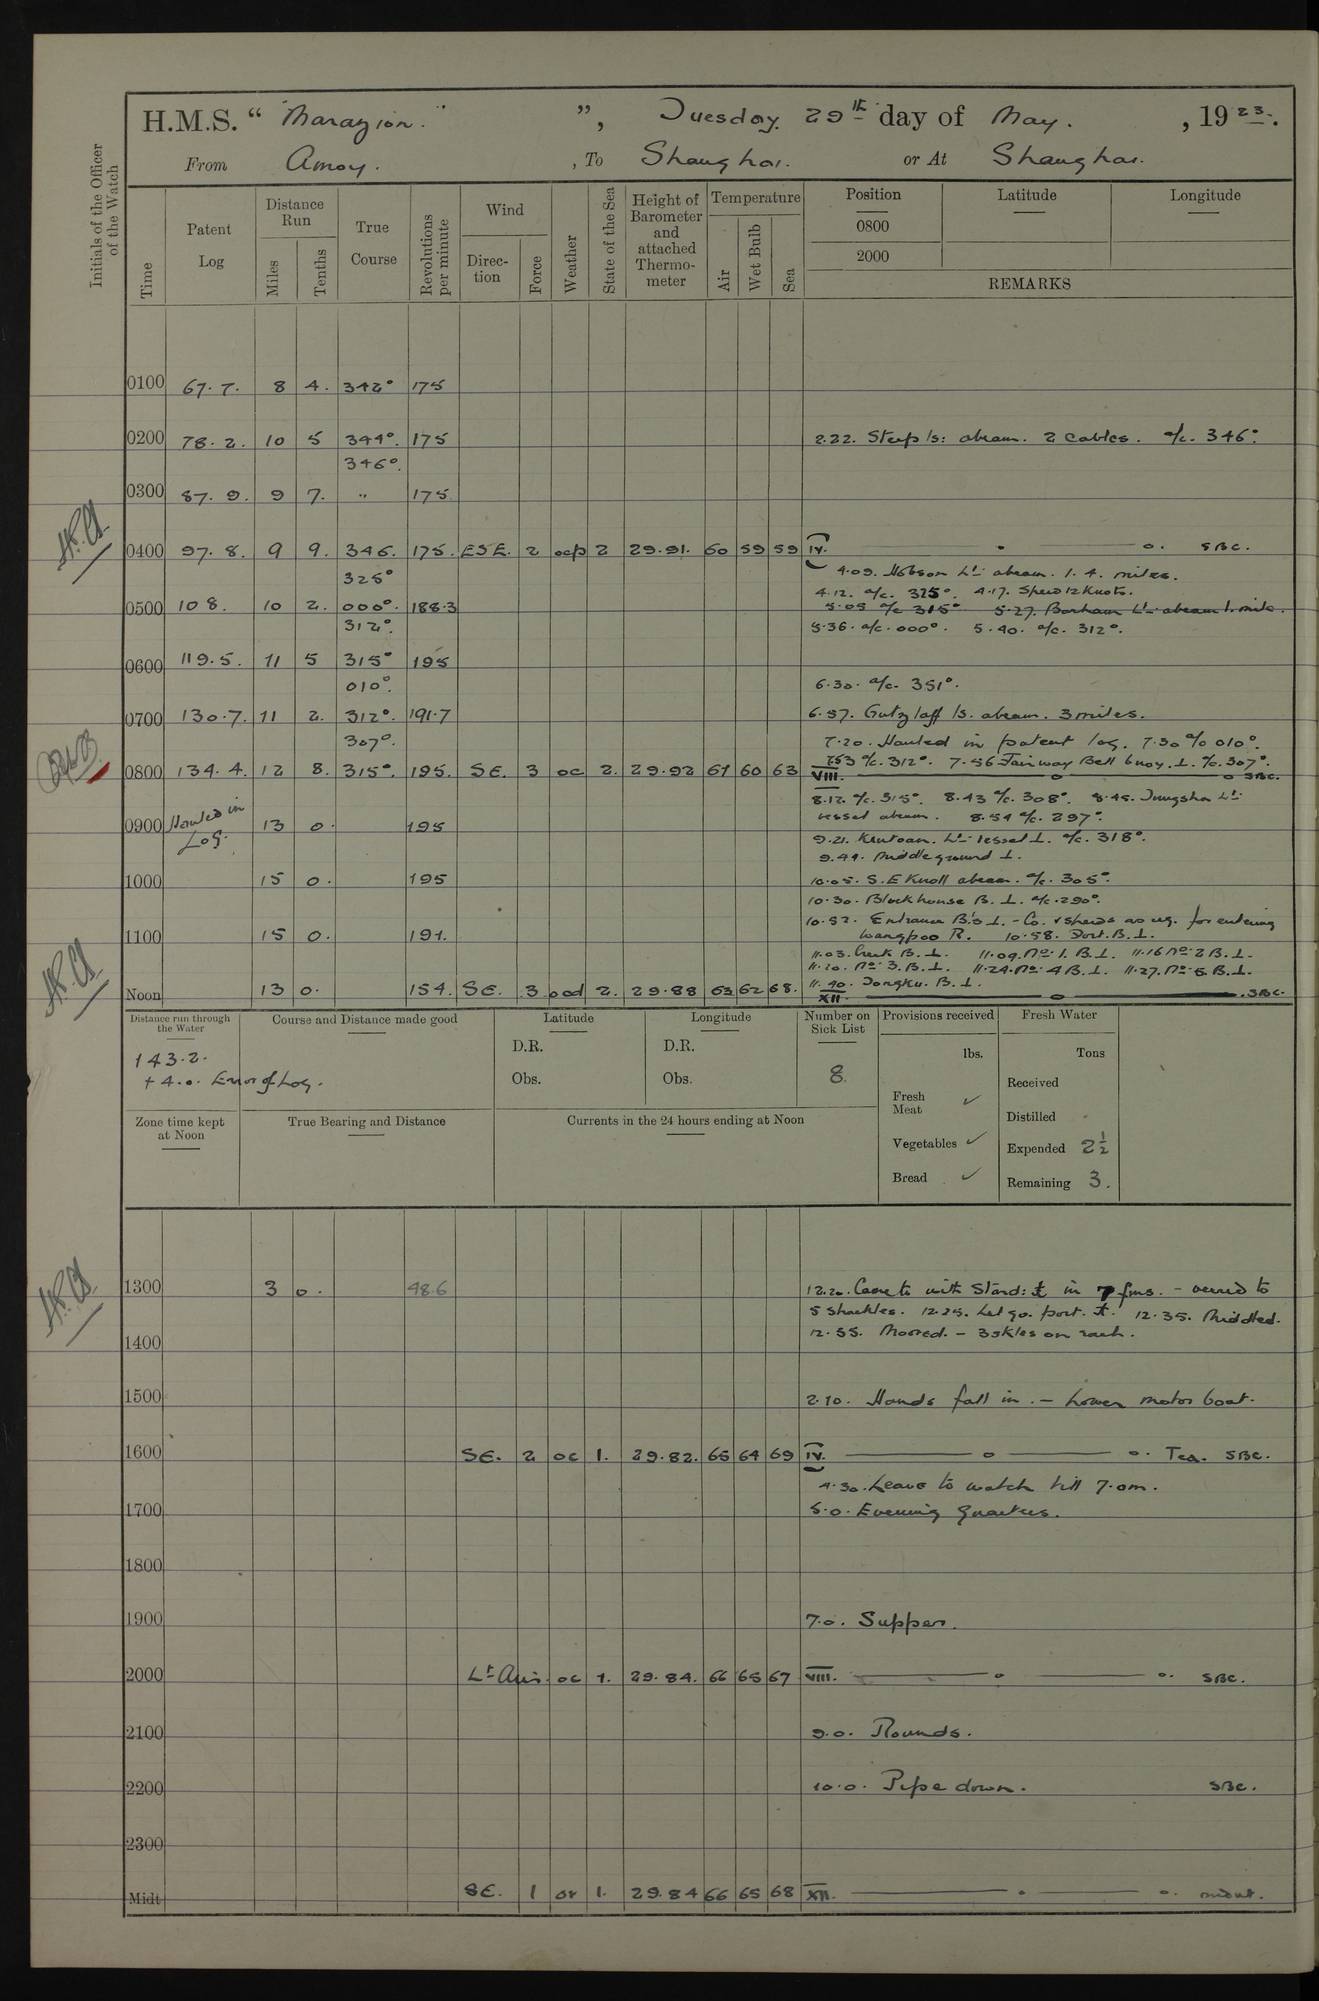 H.M.S. “ "Marazion." ”, Tuesday 29th day of May. , 1923.
From Amoy. , To Shanghai. or At Shanghai.
Initials of the Officer of the Watch
Time
Patent Log
Distance Run
Miles
Tenths
True Course
Revolutions per minute
Wind
Direction
Force
Weather
State of the Sea
Height of Barometer and attached Thermometer
Temperature
Air
Wet Bulb
Sea
Position
0800
2000
Latitude
Longitude
REMARKS
0100 67.7. 8 4. 342° 175
0200 78.2. 10 5 344°. 175 2.22. Steep Is: abeam. 2 cables. a/c. 346°.
346°.
0300 87.9. 9 7. " 175
0400 97.8. 9 9. 346. 175. ESE. 2 ocp 2 29.91. 60 59 59 IV. o o. SBC.
325° 4.09. Hobson Lt. abeam. 1.4. miles.
4.12. a/c. 325°. 4.17. Speed 12 Knots.
0500 108. 10 2. 000°. 188.3 5.05 a/c 315° 5.27. Bonham Lt. abeam 1. mile.
312°. 5.36. a/c. 000°. 5.40. a/c. 312°.
0600 119.5. 11 5 315° 195
010°. 6.30. a/c. 351°.
0700 130.7. 11 2. 312°. 191.7 6.57. Gutzlaff Is. abeam. 3 miles.
307°. 7.20. Hauled in patent log. 7.30 a/c 010°.
7.53 a/c. 312°. 7.56 Fairway Bell buoy. ⊥. a/c. 307°.
0800 134.4. 12 8. 315°. 195. SE. 3 oc 2. 29.92 61 60 63 VIII. o o SBC.
8.12. a/c. 315°. 8.43 a/c. 308°. 8.45. Tungsha Lt.
0900 Hauled in Log. 13 0. 195 vessel abeam. 8.54 a/c. 297°.
9.21. Kiutoan. Lt. vessel ⊥. a/c. 318°.
9.44. Middle ground ⊥.
1000 15 0. 195 10.05. S.E Knoll abeam. a/c. 305°.
10.30. Blockhouse B. ⊥. a/c. 290°.
10.52. Entrance B.s ⊥. - Co. & speeds as req. for entering
1100 15 0. 191. Wangpoo R. 10.58. Dort. B. ⊥.
11.03. Creek B. ⊥. 11.09. No. 1. B. ⊥. 11.16 No. 2 B. ⊥.
11.20. No. 3. B. ⊥. 11.24. No. 4 B. ⊥. 11.27. No. 5 B. ⊥.
11.40. Jongku. B. ⊥.
Noon 13 0. 154. SE. 3 ocd 2. 29.88 63 62 68. XII. o .SBC.
Distance run through the Water
143.2.
+ 4.0. Error of Log.
Course and Distance made good
Latitude
D.R.
Obs.
Longitude
D.R.
Obs.
Number on Sick List
8.
Provisions received
lbs.
Fresh Meat ✓
Vegetables ✓
Bread ✓
Fresh Water
Tons
Received
Distilled
Expended 2½
Remaining 3.
Zone time kept at Noon
True Bearing and Distance
Currents in the 24 hours ending at Noon
1300 3 0. 48.6 12.20. Came to with Starbd: ⚓ in 7 fms. - veered to
5 shackles. 12.25. Let go. port. ⚓. 12.35. Middled.
12.55. Moored. - 3 skles on each.
1400
1500 2.10. Hands fall in. - Lower motor boat.
1600 SE. 2 oc 1. 29.82. 65 64 69 IV. o o. Tea. SBC.
4.30. Leave to watch till 7.0m.
1700 5.0. Evening Quarters.
1800
1900 7.0. Supper.
2000 Lt Airs. oc 1. 29.84. 66 65 67 VIII. o o. SBC.
2100 9.0. Rounds.
2200 10.0. Pipe down. SBC.
2300
Midt SE. 1 or 1. 29.84 66 65 68 XII. o o.